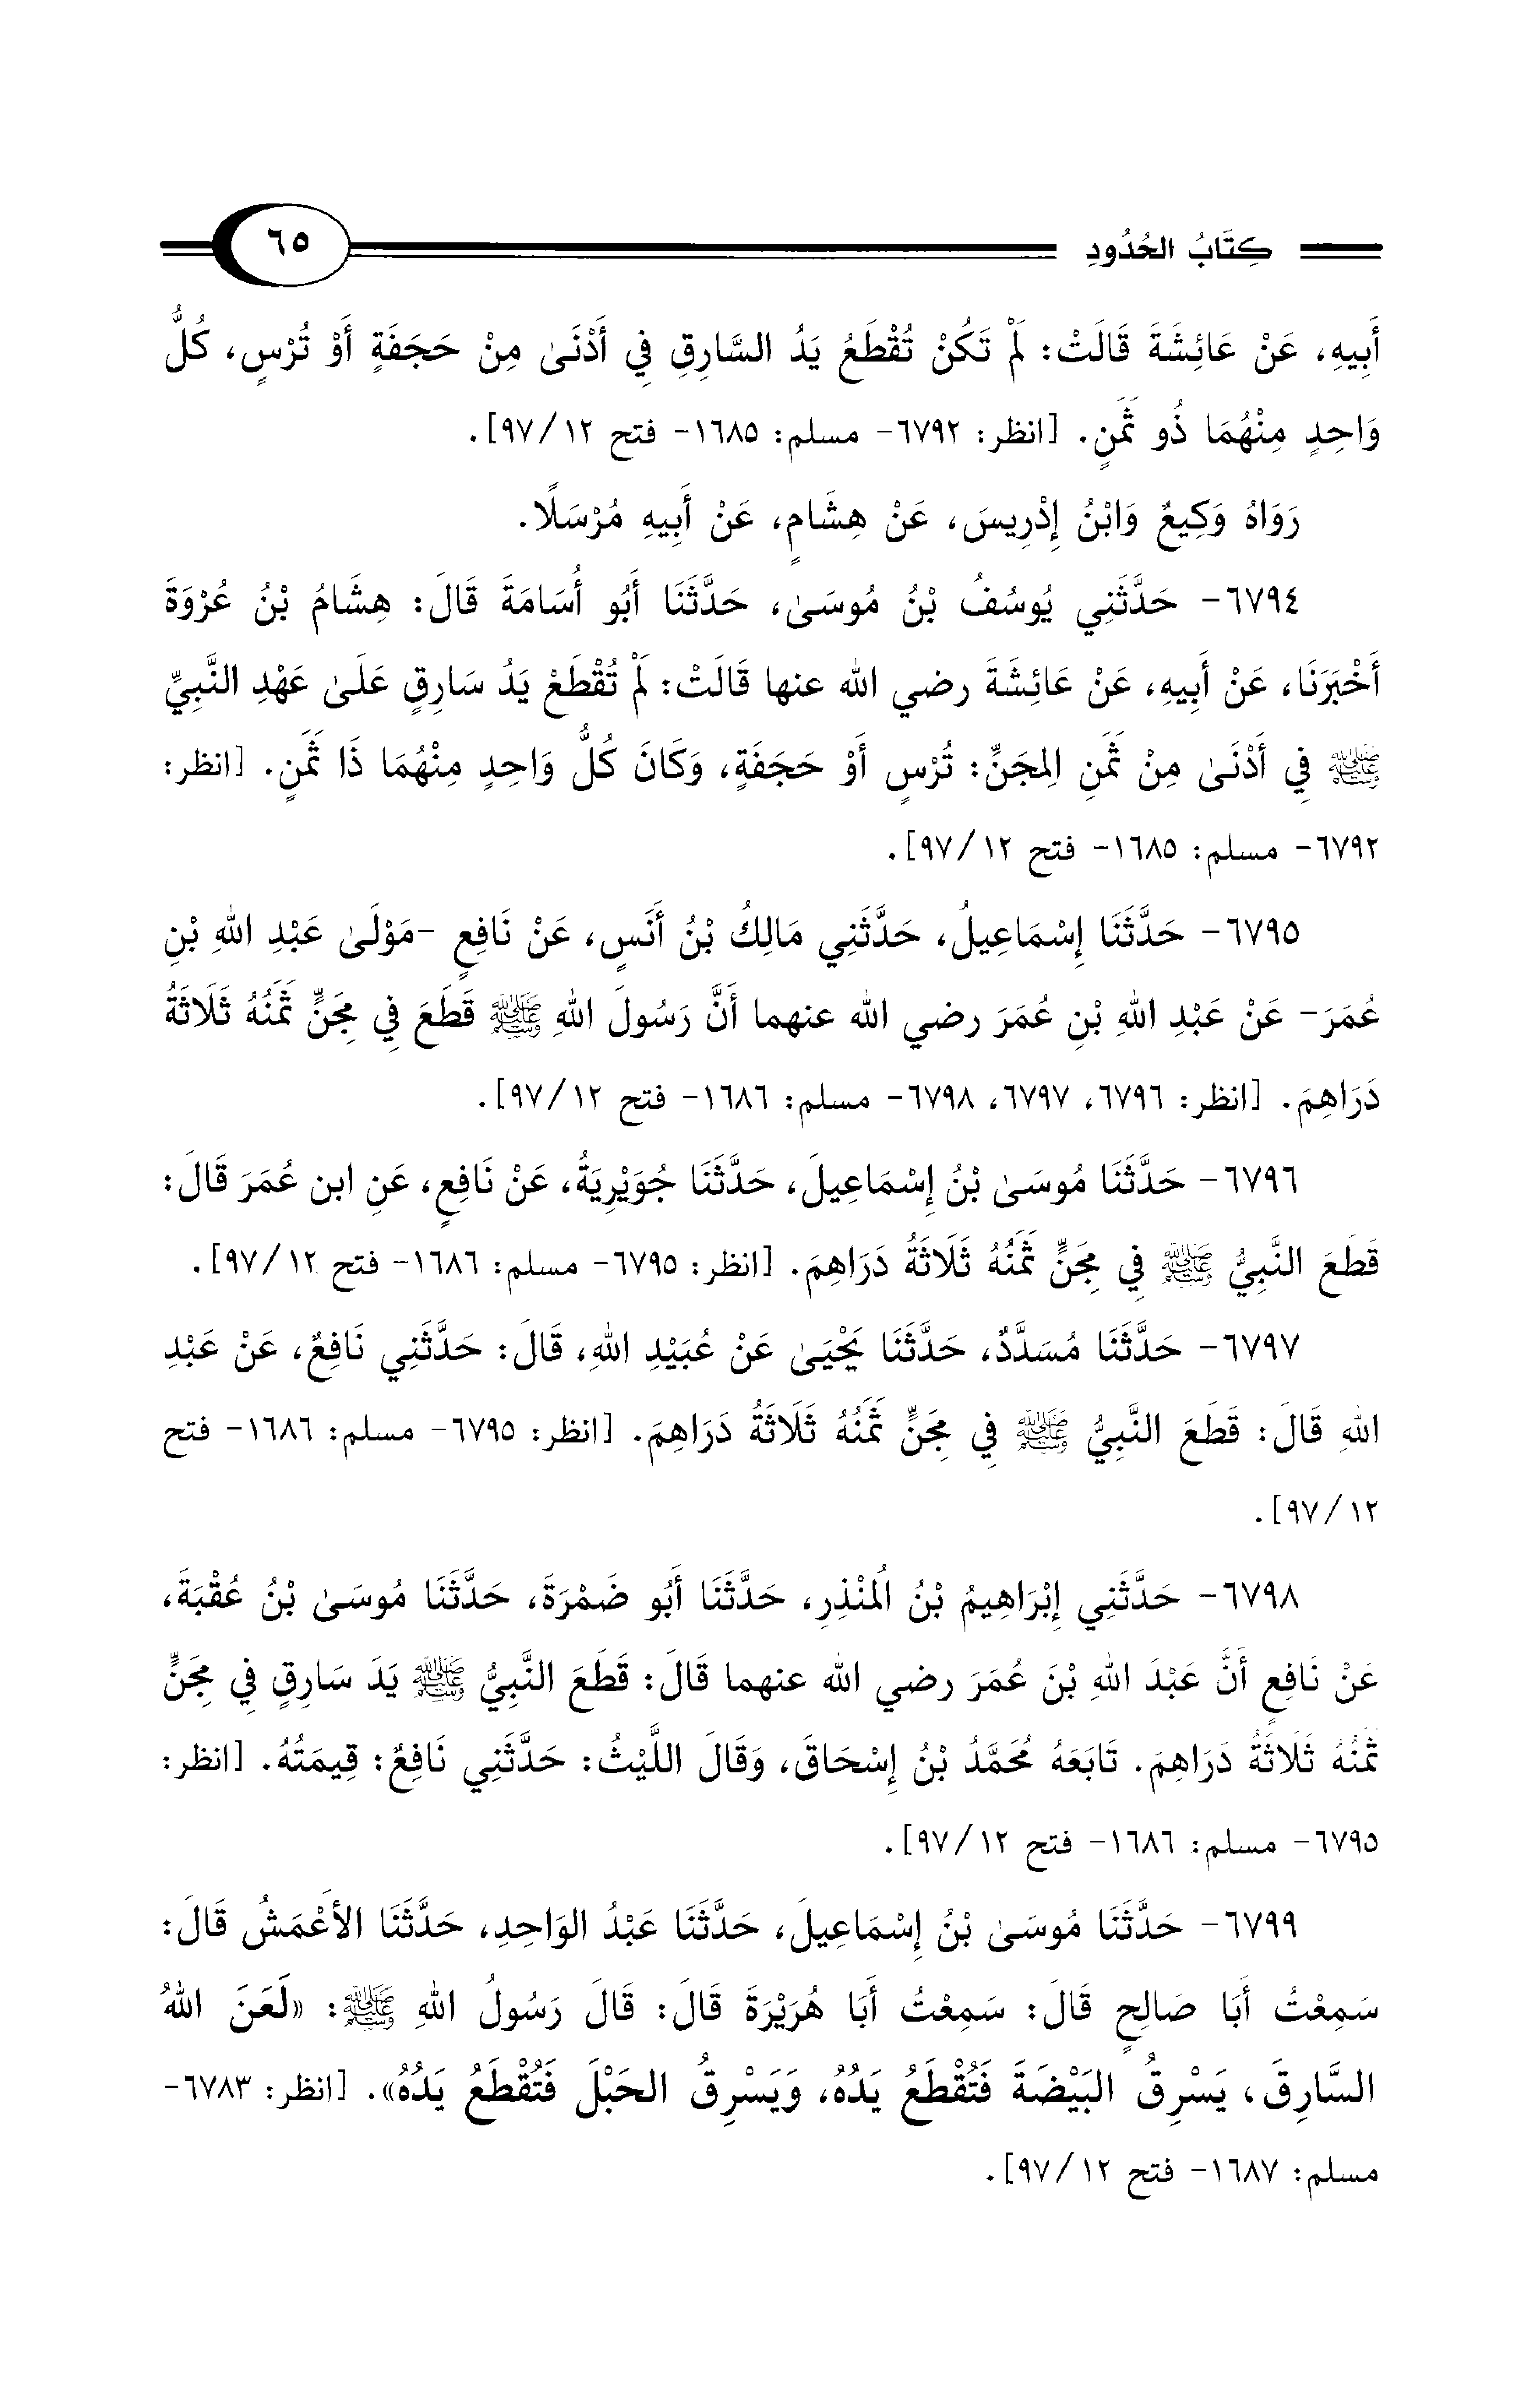 كِتَابُ الحُدُودِ ٦٥
أَبِيهِ، عَنْ عَائِشَةَ قَالَتْ: لَمْ تَكُنْ تُقْطَعُ يَدُ السَّارِقِ فِي أَدْنَىٰ مِنْ حَجَفَةٍ أَوْ تُرْسٍ، كُلُّ
وَاحِدٍ مِنْهُمَا ذُو ثَمَنٍ. [انظر: ٦٧٩٢- مسلم: ١٦٨٥- فتح ١٢/ ٩٧].
رَوَاهُ وَكِيعٌ وَابْنُ إِدْرِيسَ، عَنْ هِشَامٍ، عَنْ أَبِيهِ مُرْسَلًا.
٦٧٩٤- حَدَّثَنِي يُوسُفُ بْنُ مُوسَىٰ، حَدَّثَنَا أَبُو أُسَامَةَ قَالَ: هِشَامُ بْنُ عُرْوَةَ
أَخْبَرَنَا، عَنْ أَبِيهِ، عَنْ عَائِشَةَ رضي الله عنها قَالَتْ: لَمْ تُقْطَعْ يَدُ سَارِقٍ عَلَىٰ عَهْدِ النَّبِيِّ
ﷺ فِي أَدْنَىٰ مِنْ ثَمَنِ المِجَنِّ: تُرْسٍ أَوْ حَجَفَةٍ، وَكَانَ كُلُّ وَاحِدٍ مِنْهُمَا ذَا ثَمَنٍ. [انظر:
٦٧٩٢- مسلم: ١٦٨٥- فتح ١٢/ ٩٧].
٦٧٩٥- حَدَّثَنَا إِسْمَاعِيلُ، حَدَّثَنِي مَالِكُ بْنُ أَنَسٍ، عَنْ نَافِعٍ -مَوْلَىٰ عَبْدِ اللهِ بْنِ
عُمَرَ- عَنْ عَبْدِ اللهِ بْنِ عُمَرَ رضي الله عنهما أَنَّ رَسُولَ اللهِ ﷺ قَطَعَ فِي مِجَنٍّ ثَمَنُهُ ثَلَاثَةُ
دَرَاهِمَ. [انظر: ٦٧٩٦، ٦٧٩٧، ٦٧٩٨- مسلم: ١٦٨٦- فتح ١٢/ ٩٧].
٦٧٩٦- حَدَّثَنَا مُوسَىٰ بْنُ إِسْمَاعِيلَ، حَدَّثَنَا جُوَيْرِيَةُ، عَنْ نَافِعٍ، عَنِ ابن عُمَرَ قَالَ:
قَطَعَ النَّبِيُّ ﷺ فِي مِجَنٍّ ثَمَنُهُ ثَلَاثَةُ دَرَاهِمَ. [انظر: ٦٧٩٥- مسلم: ١٦٨٦- فتح ١٢/ ٩٧].
٦٧٩٧- حَدَّثَنَا مُسَدَّدٌ، حَدَّثَنَا يَحْيَىٰ عَنْ عُبَيْدِ اللهِ، قَالَ: حَدَّثَنِي نَافِعٌ، عَنْ عَبْدِ
اللهِ قَالَ: قَطَعَ النَّبِيُّ ﷺ فِي مِجَنٍّ ثَمَنُهُ ثَلَاثَةُ دَرَاهِمَ. [انظر: ٦٧٩٥- مسلم: ١٦٨٦- فتح
١٢/ ٩٧].
٦٧٩٨- حَدَّثَنِي إِبْرَاهِيمُ بْنُ الُمنْذِرِ، حَدَّثَنَا أَبُو ضَمْرَةَ، حَدَّثَنَا مُوسَىٰ بْنُ عُقْبَةَ،
عَنْ نَافِعٍ أَنَّ عَبْدَ اللهِ بْنَ عُمَرَ رضي الله عنهما قَالَ: قَطَعَ النَّبِيُّ ﷺ يَدَ سَارِقٍ فِي مِجَنٍّ
ثَمَنُهُ ثَلَاثَةُ دَرَاهِمَ. تَابَعَهُ مُحَمَّدُ بْنُ إِسْحَاقَ، وَقَالَ اللَّيْثُ: حَدَّثَنِي نَافِعٌ: قِيمَتُهُ. [انظر:
٦٧٩٥- مسلم: ١٦٨٦- فتح ١٢/ ٩٧].
٦٧٩٩- حَدَّثَنَا مُوسَىٰ بْنُ إِسْمَاعِيلَ، حَدَّثَنَا عَبْدُ الوَاحِدِ، حَدَّثَنَا الأَعْمَشُ قَالَ:
سَمِعْتُ أَبَا صَالِحٍ قَالَ: سَمِعْتُ أَبَا هُرَيْرَةَ قَالَ: قَالَ رَسُولُ اللهِ ﷺ: «لَعَنَ اللهُ
السَّارِقَ، يَسْرِقُ البَيْضَةَ فَتُقْطَعُ يَدُهُ، وَيَسْرِقُ الحَبْلَ فَتُقْطَعُ يَدُهُ». [انظر: ٦٧٨٣-
مسلم: ١٦٨٧- فتح ١٢/ ٩٧].